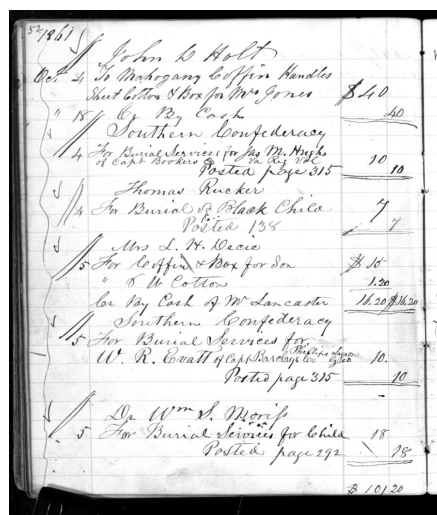 52
1861
John L Holt
Oct 4 To Mahogany Coffin Handles
Sheet Cotton & Box for Mrs Jones $40
" 18 Cr By Cash 40
Southern Confederacy
4 For Burial Services for Jas M. Hughs
of Capt Bookers Co Va Reg Vol 10
Posted page 315 10
Thomas Rucker
4 For Burial of Black Child 7
Posted 138 7
Mrs L. H.
5 For Coffin & Box for Son $ 15
" 8 W Cotton 1.20
Cr By Cash of Mr Lancaster 16.20 $16.20
Southern Confederacy
5 For Burial Services for
W. R. Evatt of Capt Barclays Co Phillips Legion 10.
Posted page 315 10
Dr Wm S. Moriss
5 For Burial Services for Child 18
Posted page 292 18
$ 101 20